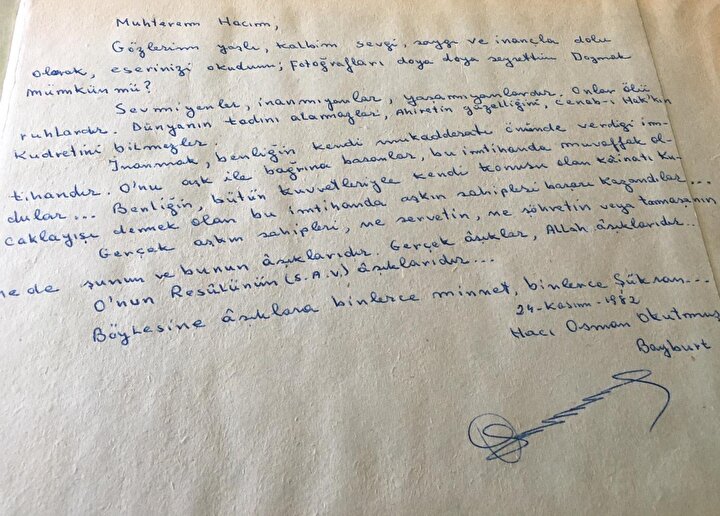 Muhterem Hacım,
Gözlerim yaşlı, kalbim sevgi, saygı ve inançla dolu
olarak, eserinizi okudum; Fotoğrafları doya doya seyrettim Doymak
mümkün mü?
Sevmiyenler, inanmıyanlar, yaşamıyanlardır. Onlar ölü
ruhlardır. Dünyanın tadını alamazlar, Ahiretin güzelliğini, Cenab-ı Hak'kın
Kudretini bilmezler.
İnanmak, benliğin kendi mukadderatı önünde verdiği im-
tihandır. O'nu aşk ile bağrına basanlar, bu imtihanda muvaffak ol-
dular... Benliğin, bütün kuvvetleriyle kendi konusu olan kâinatı ku-
caklayışı demek olan bu imtihanda aşkın sahipleri başarı kazandılar...
Gerçek aşkın sahipleri, ne servetin, ne şöhretin veya tamaşanın
ne de şunun ve bunun âşıklarıdır. Gerçek âşıklar, Allah âşıklarıdır..
O'nun Resûlünün (S.A.V) âşıklarıdır...
Böylesine âşıklara binlerce minnet, binlerce Şükran...
24-Kasım-1982
Hacı Osman Okutmuş
Bayburt